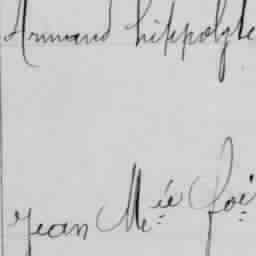 Armand hippolyte
Jean Mie foi